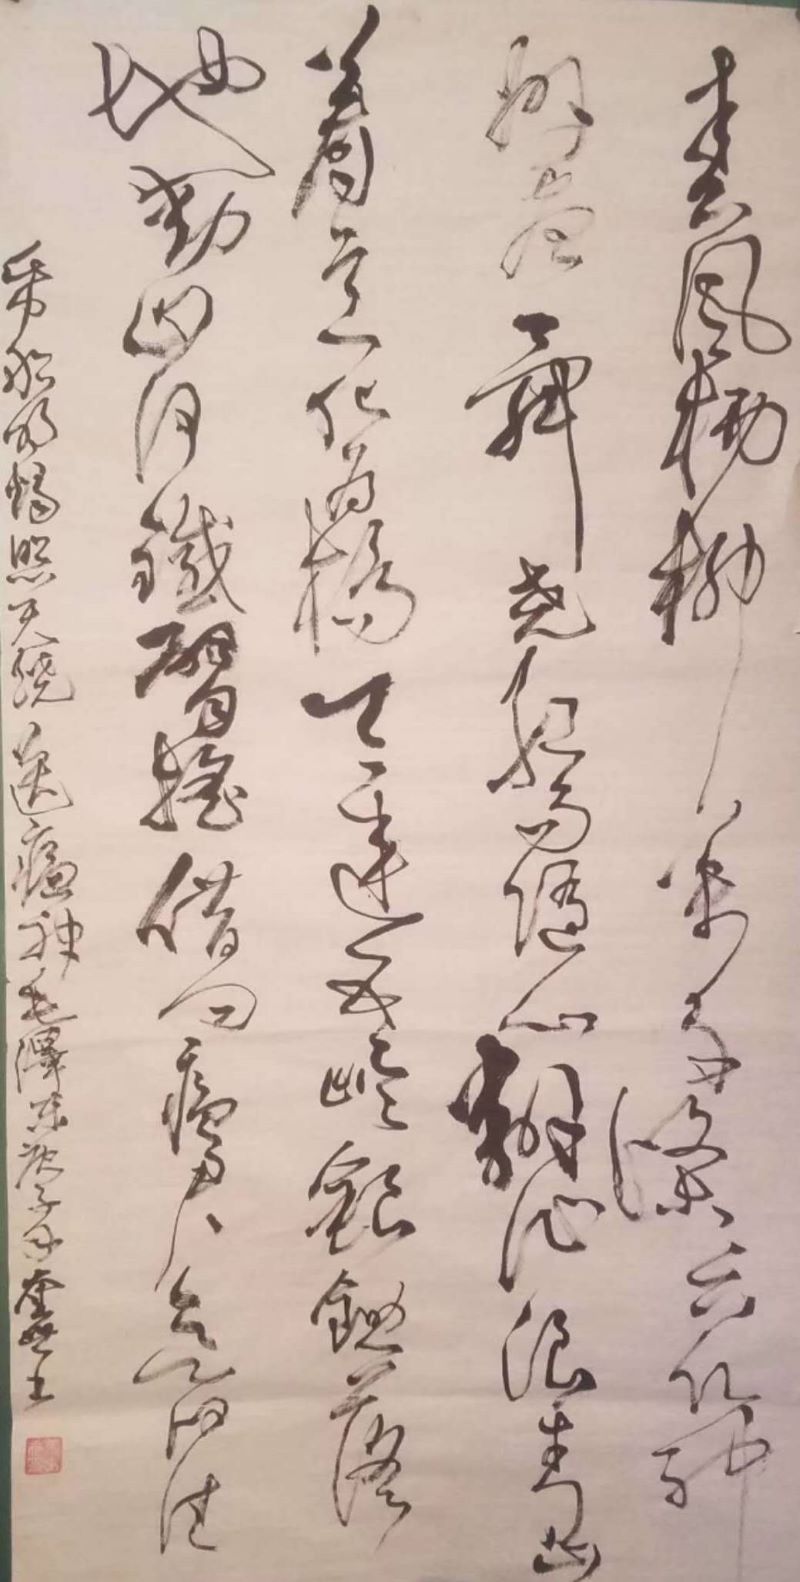 春風楊柳萬千條六亿神
州盡舜堯紅雨隨心翻作浪青山
着意化為橋天連五嶺銀鋤落
地動山河鐵臂搖借問瘟君欲何往
紙船明燭照天燒送瘟神毛澤東庚子年